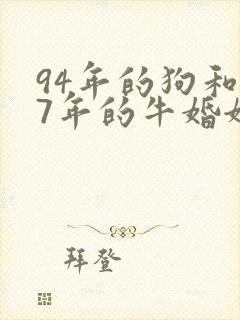 94年的狗和
7年的牛婚
拜登